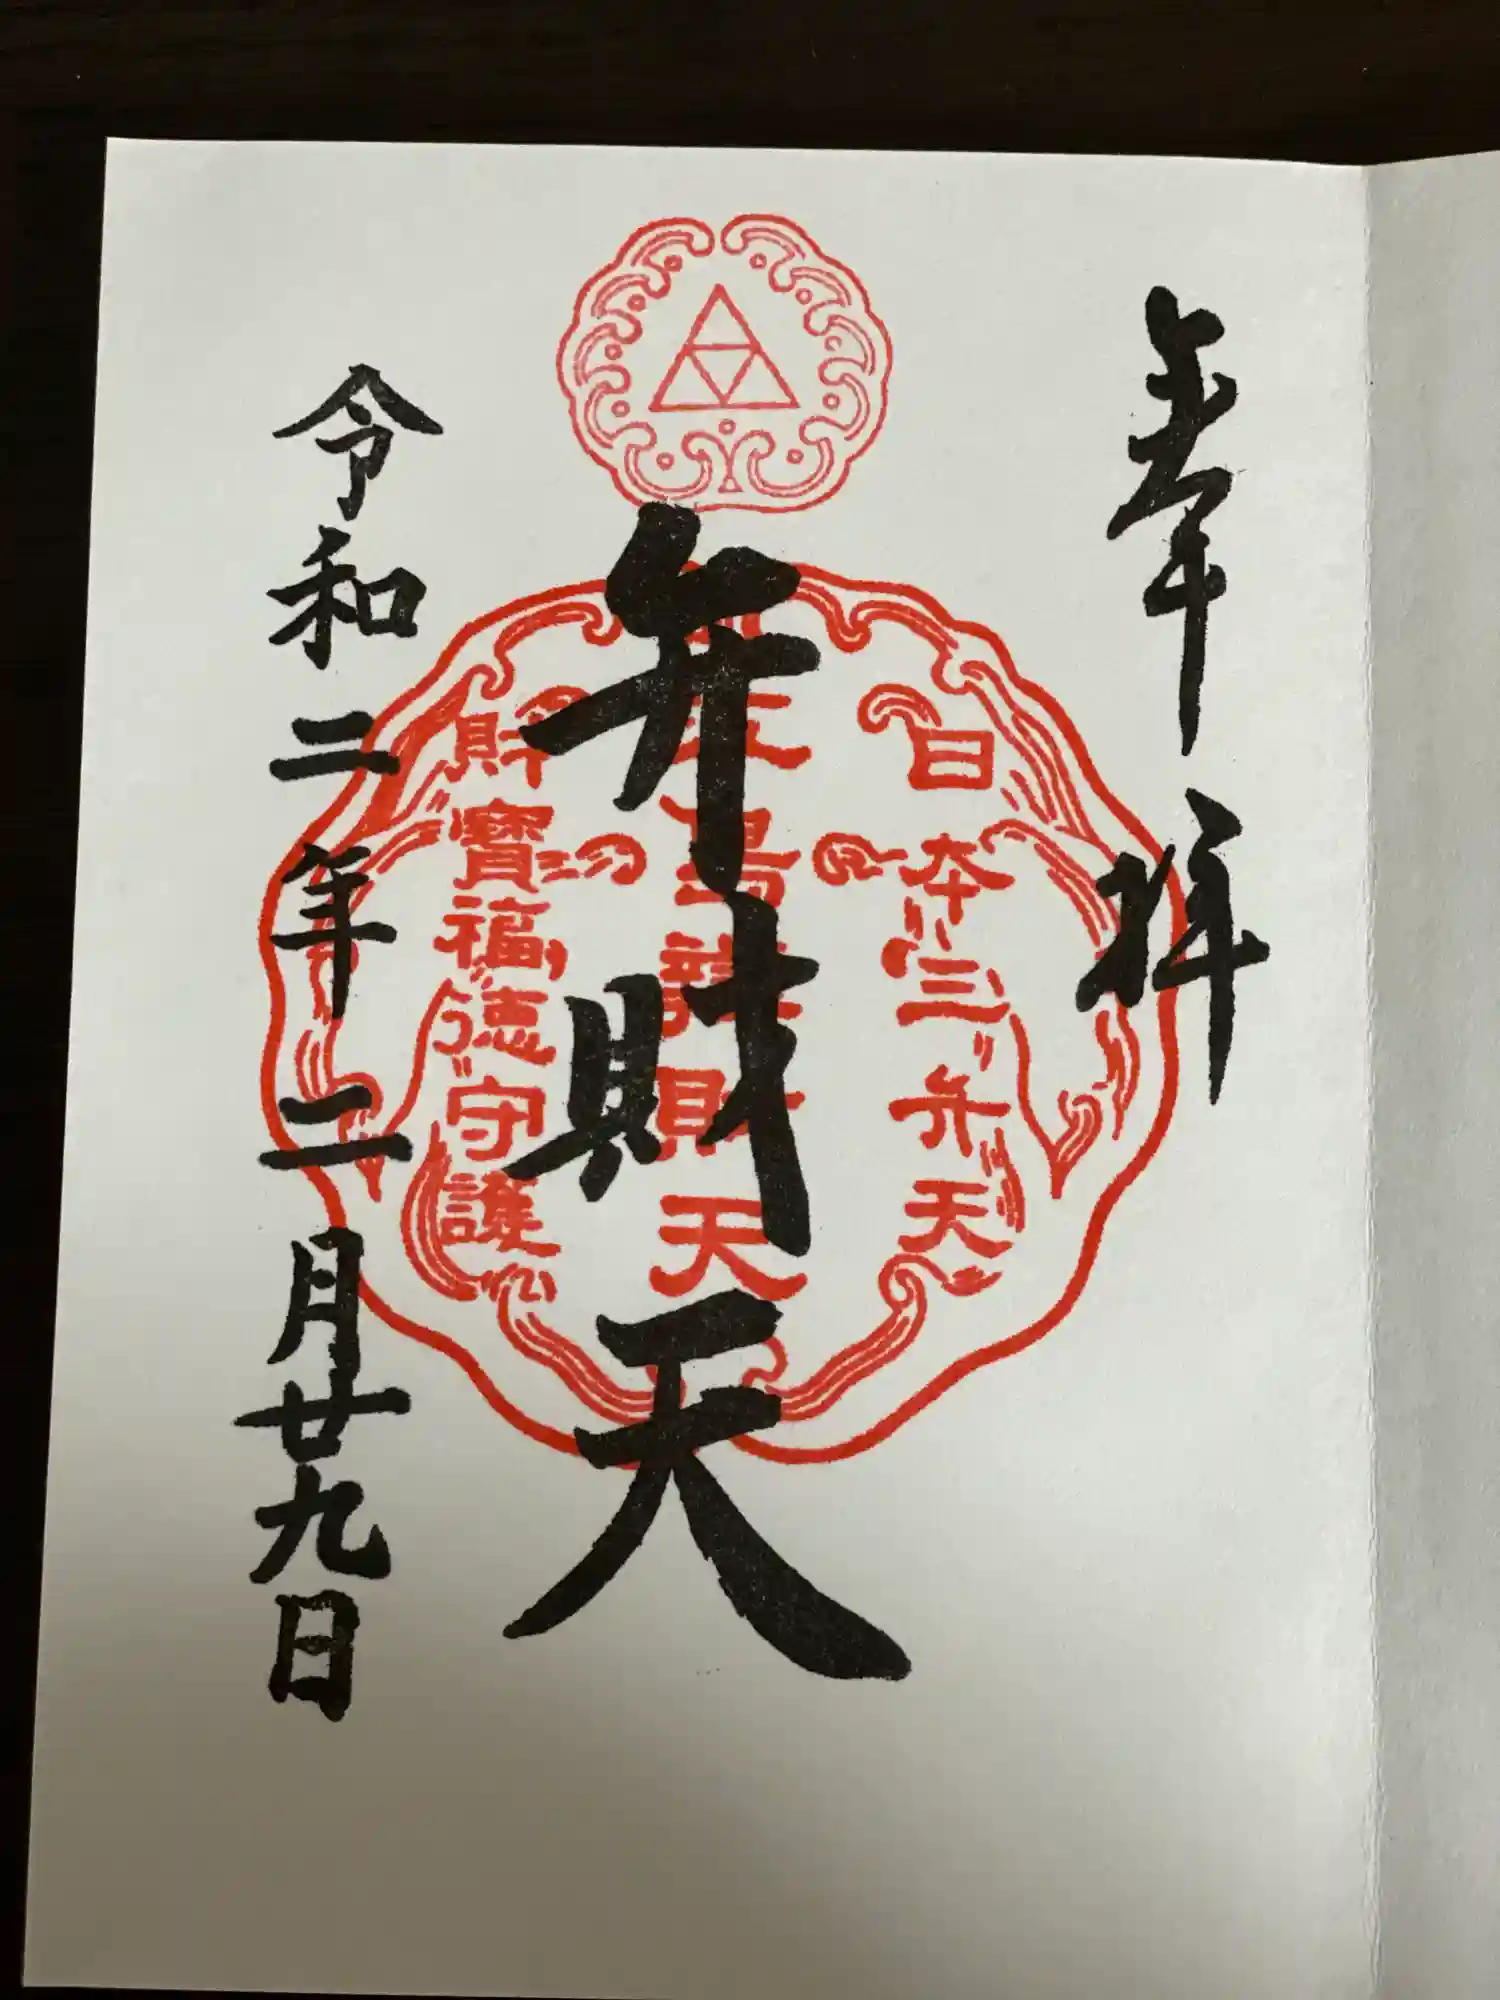 奉拝
日本三弁天
天
財寶福徳守護
弁財天
令和二年二月廿九日